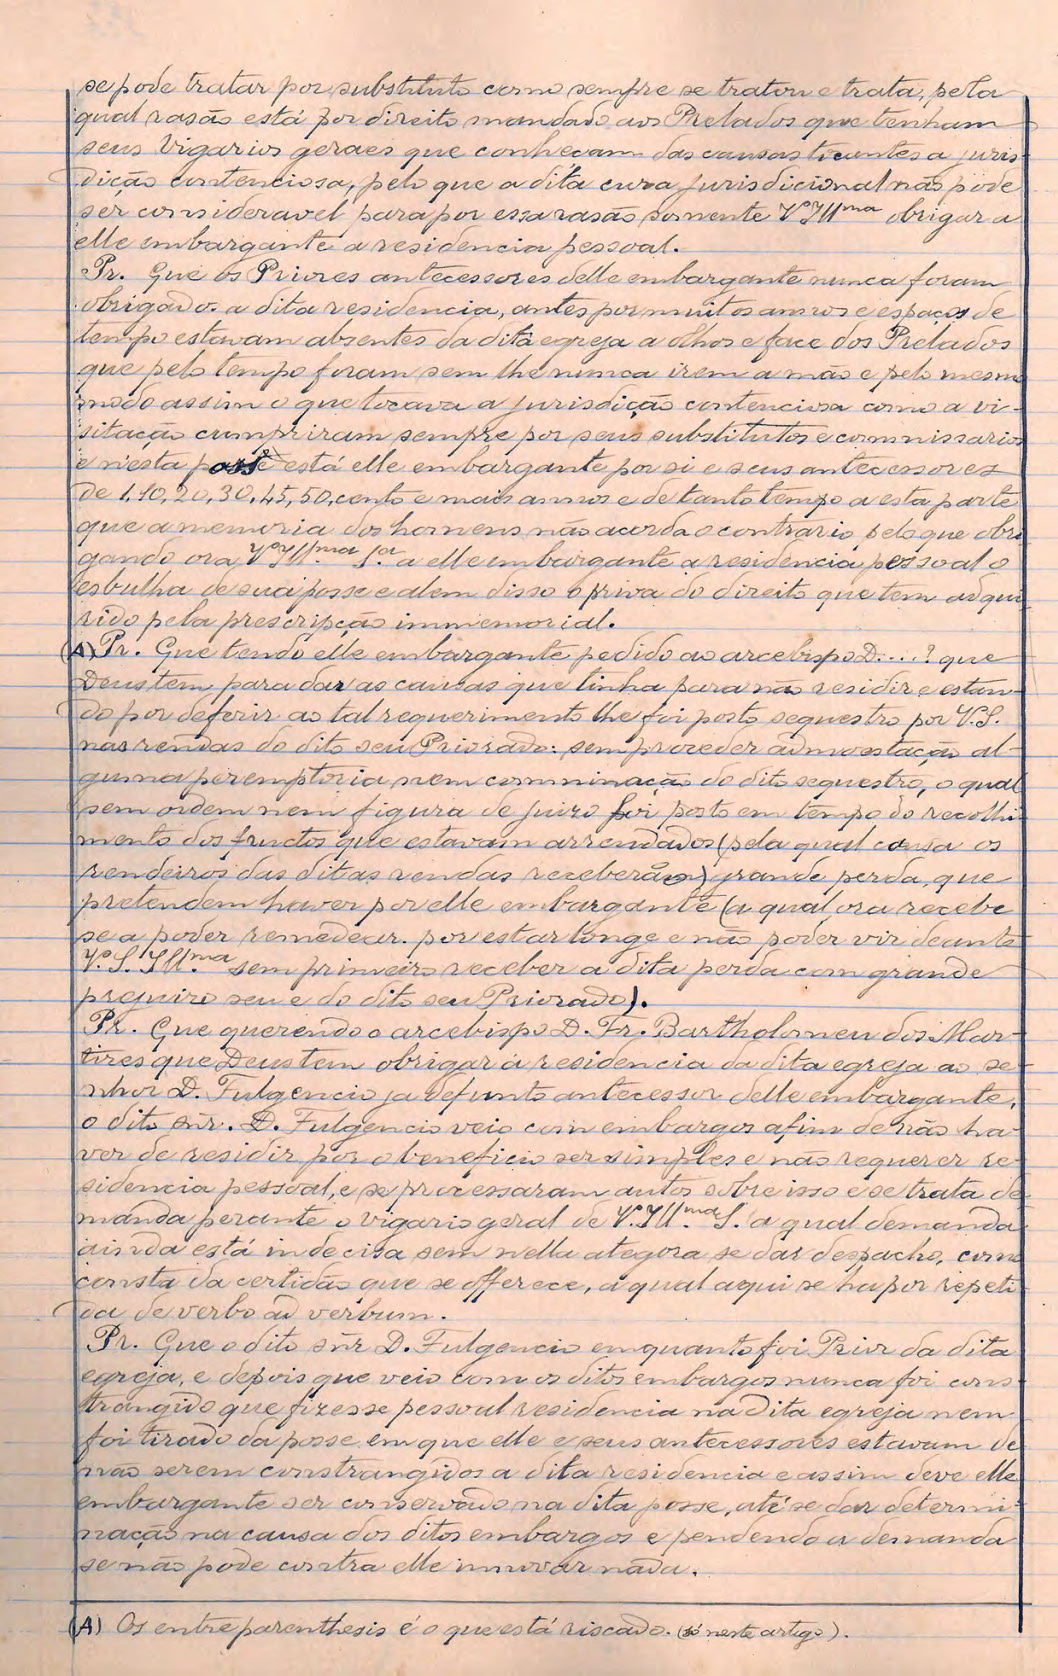 se pode tratar por substituto como sempre se tratou e trata, pela
qual rasão está por direito mandado aos Prelados que tenham
seus Vigarios geraes que conhecam das causas tocantes a juris-
dição contenciosa, pelo que a dita cura jurisdicional não póde
ser consideravel para por essa rasão somente V. Ill.ma obrigar a
elle embargante a residencia pessoal.
Pr. Que os Priores antecessores delle embargante nunca foram
obrigados a dita residencia, antes por muitos annos e espaços de
tempo estavam absentes da dita egreja a olhos e face dos Prelados
que pelo tempo foram sem lhe nunca irem a mão e pelo mesmo
modo assim o que tocava a jurisdicção contenciosa como a vi-
sitação cumpriram sempre por seus substitutos e commissarios
e n'esta posse está elle embargante por si e seus antecessores
de 1, 10, 20, 30, 45, 50, cento e mais annos e de tanto tempo a esta parte
que a memoria dos homens não acorda o contrario, pelo que obri-
gando ora V. Ill.ma S.a a elle embargante a residencia pessoal o
esbulha de sua posse e alem disso o priva do direito que tem adqui-
rido pela prescripção immemorial.
(A) Pr. Que tendo elle embargante pedido ao arcebispo D....? que
Deus tem para dar as causas que tinha para não residir e estan-
do por deferir ao tal requerimento lhe foi posto sequestro por V. S.
nas rendas do dito seu Priorado: sem proceder admoestação al-
guma peremptoria nem comminação do dito sequestro, o qual
sem ordem nem figura de juizo foi posto em tempo do recolhi-
mento dos fructos que estavam arrendados (pela qual causa os
rendeiros das ditas rendas receberão) grande perda, que
pretendem haver por elle embargante (a qual ora recebe
se a poder remedear. por estar longe e não poder vir deante
V. S. Ill.ma sem primeiro receber a dita perda com grande
prejuizo seu e do dito seu Priorado).
Pr. Que querendo o arcebispo D. Fr. Bartholomeu dos Mar-
tires que Deus tem obrigar á residencia da dita egreja ao se-
nhor D. Fulgencio ja defunto antecessor delle embargante,
o dito snr. D. Fulgencio veio com embargos afim de não ha-
ver de residir por o beneficio ser simples e não requerer re-
sidencia pessoal, e se processaram autos sobre isso e se trata de-
manda perante o vigario geral de V. Ill.ma S. a qual demanda
ainda está indecisa sem nella ategora se dar despacho, como
consta da certidão que se offerece, a qual aqui se ha por repeti-
da de verbo ad verbum.
Pr. Que o dito snr D. Fulgencio emquanto foi Prior da dita
egreja, e depois que veio com os ditos embargos nunca foi cons-
trangido que fizesse pessoal residencia na dita egreja nem
foi tirado da posse em que elle e seus antecessores estavam de
não serem constrangidos a dita residencia e assim deve elle
embargante ser conservado na dita posse, até se dar determi-
nação na causa dos ditos embargos e pendendo a demanda
se não pode contra elle innovar nada.
(A) Os entre parenthesis é o que está riscado. (só neste artigo).